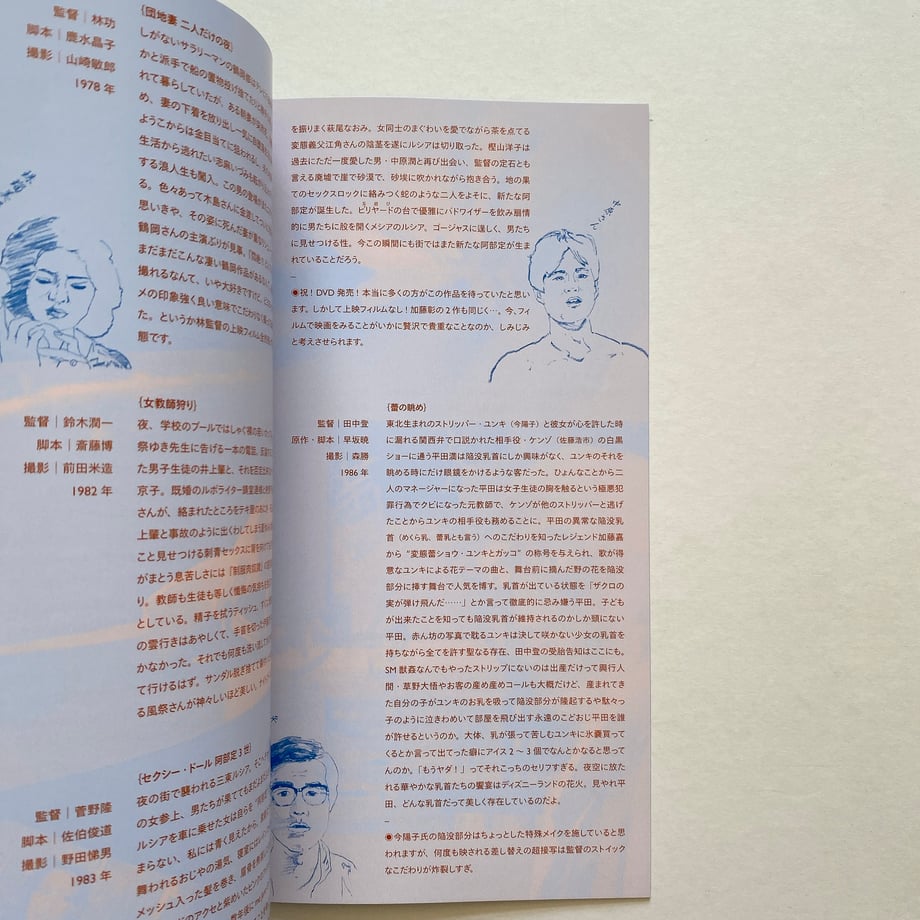 監督｜林功
脚本｜鹿水晶子
撮影｜山崎敏郎
1978 年
{団地妻 二人だけの夜}
しがないサラリーマンの鶴岡
かと派手で船の置物投げ捨て
れて暮らしていたが、ある
め、妻の下着を放り出し一気に
ようこからは金目当てに狙われるし、
生活から逃れたい志麻いづみも
する浪人生も闖入。この男の
る。色々あって木島さんに金渡して
思いきや、その姿に死んだ妻が
鶴岡さんの主演ぶりが見事。
まだまだこんな凄い鶴岡作品がある
撮れるなんて、いや大好きですけど、
メの印象強く良い意味でこだわりなく
た。というか林監督の上映フィルム全
態です。
監督｜鈴木潤一
脚本｜斎藤博
撮影｜前田米造
1982 年
{女教師狩り}
夜、学校のプールではしゃぐ裸の
祭ゆき先生に告げる一本の電話。
た男子生徒の井上肇と、それを
京子。既婚のルポライター錆堂連
さんが、絡まれたところをテキ屋の
上肇と事故のように出くわしてしまう
こと見せつける刺青セックスに
がまとう息苦しさには『制服肉奴隷』
り。教師も生徒も等しく懺悔の気持ち
としている。精子を拭うティッシュ、
の雲行きはあやしくて、手首を切った
かなかった。それでも何度も洗い流し
て行けるはず。サンダル脱ぎ捨てて
る風祭さんが神々しいほど美しい。
監督｜菅野隆
脚本｜佐伯俊道
撮影｜野田悌男
1983 年
{セクシー・ドール 阿部定3世}
夜の街で襲われる三東ルシア。
の女参上、男たちが果てても
ルシアを車に乗せた女は自らを
まらない、私には青く見えたから。
舞われるおじやの湯気、寝室には
メッシュ入った髪を巻き、眉骨を
のアクセと紫めいたピンクの
を振りまく萩尾なおみ。女同士のまぐわいを愛でながら茶を点てる
変態義父江角さんの陰茎を遂にルシアは切り取った。樫山洋子は
過去にただ一度愛した男・中原潤と再び出会い、監督の定石とも
言える廃墟で崖で砂漠で、砂埃に吹かれながら抱き合う。地の果
てのセックスロックに絡みつく蛇のような二人をよそに、新たな阿
部定が誕生した。ビリヤードの台で優雅にバドワイザーを飲み扇情
的に男たちに股を開くメシアのルシア、ゴージャスに逞しく、男たち
に見せつける性。今この瞬間にも街ではまた新たな阿部定が生ま
れていることだろう。
–
◉祝！DVD 発売！本当に多くの方がこの作品を待っていたと思い
ます。しかして上映フィルムなし！加藤彰の2作も同じく…。今、フィ
ルムで映画をみることがいかに贅沢で貴重なことなのか、しみじみ
と考えさせられます。
監督｜田中登
原作・脚本｜早坂暁
撮影｜森勝
1986 年
{蕾の眺め}
東北生まれのストリッパー・ユンキ（今陽子）と彼女が心を許した時
に漏れる関西弁で口説かれた相手役・ケンゾ（佐藤浩市）の白黒
ショーに通う平田満は陥没乳首にしか興味がなく、ユンキのそれを
眺める時にだけ眼鏡をかけるような客だった。ひょんなことから二
人のマネージャーになった平田は女子生徒の胸を触るという極悪犯
罪行為でクビになった元教師で、ケンゾが他のストリッパーと逃げ
たことからユンキの相手役も務めることに。平田の異常な陥没乳
首（めくら乳、蕾乳とも言う）へのこだわりを知ったレジェンド加藤嘉
から“変態蕾ショウ・ユンキとガッコ”の称号を与えられ、歌が得
意なユンキによる花テーマの曲と、舞台前に摘んだ野の花を陥没
部分に挿す舞台で人気を博す。乳首が出ている状態を「ザクロの
実が弾け飛んだ……」とか言って徹底的に忌み嫌う平田。子ども
が出来たことを知っても陥没乳首が維持されるのかしか頭にない
平田。赤ん坊の写真で耽るユンキは決して咲かない少女の乳首を
持ちながら全てを許す聖なる存在、田中登の受胎告知はここにも。
SM 獣姦なんでもやったストリップにないのは出産だけって興行人
間・草野大悟やお客の産め産めコールも大概だけど、産まれてき
た自分の子がユンキのお乳を吸って陥没部分が隆起するや駄々っ
子のように泣きわめいて部屋を飛び出す永遠のこどおじ平田を誰
が許せるというのか。大体、乳が張って苦しむユンキに氷嚢買って
くるとか言って出てった癖にアイス 2 〜 3 個でなんとかなると思って
んのか。「もうヤダ！」ってそれこっちのセリフすぎる。夜空に放た
れる華やかな乳首たちの饗宴はディズニーランドの花火。見やれ平
田、どんな乳首だって美しく存在しているのだよ。
–
◉今陽子氏の陥没部分はちょっとした特殊メイクを施していると思
われますが、何度も映される差し替えの超接写は監督のストイック
なこだわりが炸裂しすぎ。